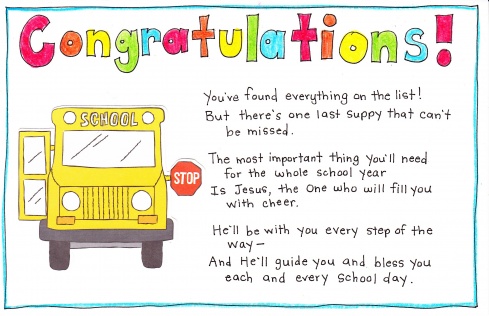 Congratulations!
SCHOOL
STOP
You've found everything on the list!
But there's one last suppy that can't
be missed.
The most important thing you'll need
for the whole school year
Is Jesus, the One who will fill you
with cheer.
He'll be with you every step of the
way—
And He'll guide you and bless you
each and every school day.